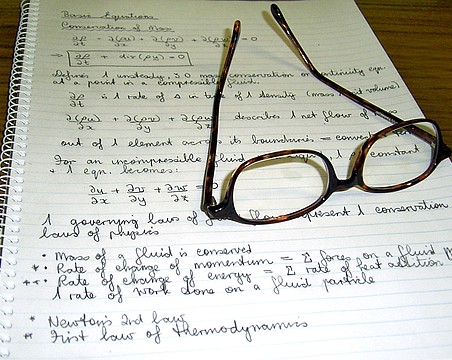 Basic Equations
Conservation of Mass
∂ρ/∂t + ∂(ρu)/∂x + ∂(ρv)/∂y + ∂(ρw)/∂z = 0
⇒ ∂ρ/∂t + div(ρu) = 0
Defines 1 unsteady, 3D mass conservation or continuity eqn.
at a point in a compressible fluid.
∂ρ/∂t is 1 rate of Δ in 1 density (mass volume)
∂(ρu)/∂x + ∂(ρv)/∂y + ∂(ρw)/∂z describes 1 net flow of
out of 1 element across its boundaries =
For an incompressible fluid 1 constant
+ 1 eqn. becomes:
∂u/∂x + ∂v/∂y + ∂w/∂z = 0
1 governing laws of flow represent 1 conservation
laws of physics
• Mass of a fluid is conserved
* • Rate of change of momentum = Σ forces on a fluid
** • Rate of change of energy = Σ rate of heat addition
1 rate of work done on a fluid particle
* Newton's 2nd law
* First law of thermodynamics